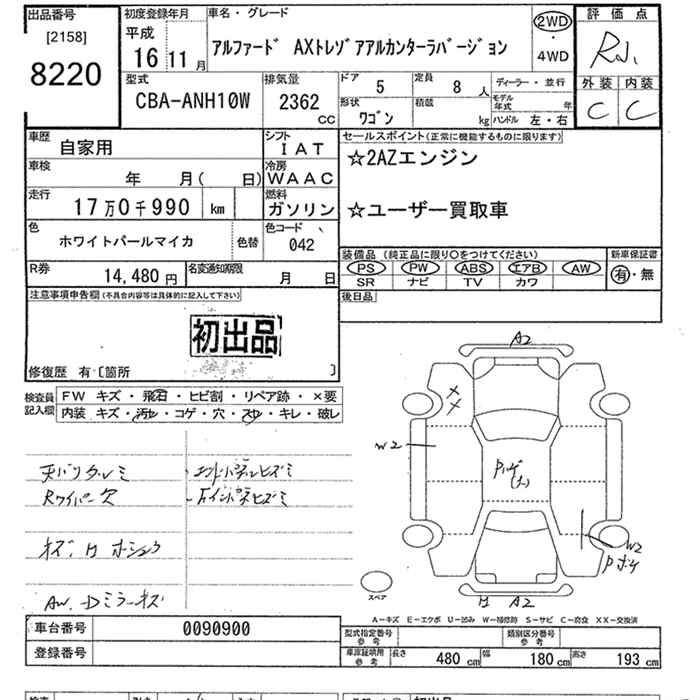 出品番号
[2158]
8220
初度登録年月
平成
16 11 月
車名・グレード
アルファード AXトレゾアアルカンターラバージョン
2WD
・
4WD
評価点
外装 内装
C C
型式
CBA-ANH10W
排気量
2362 CC
ドア 5
定員 8 人
形状 ワゴン
積載 kg
ディーラー・並行
モデル年式 年
ハンドル 左・右
車歴
自家用
シフト
IAT
車検
年 月( 日)
冷房
WAAC
走行
17万0千990 km
燃料
ガソリン
色
ホワイトパールマイカ
色替
色コード
042
R券
14,480 円
名変通知期限
月 日
セールスポイント(正常に機能するものに限ります)
☆2AZエンジン
☆ユーザー買取車
装備品 (純正品に限り○をつけてください)
PS PW ABS エアB AW
SR ナビ TV カワ
新車保証書
有・無
後日品
注意事項申告欄(不具合内容等は具体的に記入して下さい)
初出品
修復歴 有〔箇所 〕
検査員記入欄
FW キズ・飛石・ヒビ割・リペア跡・×要
内装 キズ・汚れ・コゲ・穴・スレ・キレ・破レ
天バリタルミ
Rワイパー欠
AW. Dミラーキズ
A2
W2
W2
A2
スペア
A-キズ E-エクボ U-凹み W-補修跡 S-サビ C-腐食 XX-交換済
車台番号
0090900
登録番号
型式指定番号
参考
類別区分番号
参考
車庫証明用
参考
長さ 480 cm 幅 180 cm 高さ 193 cm
初出品